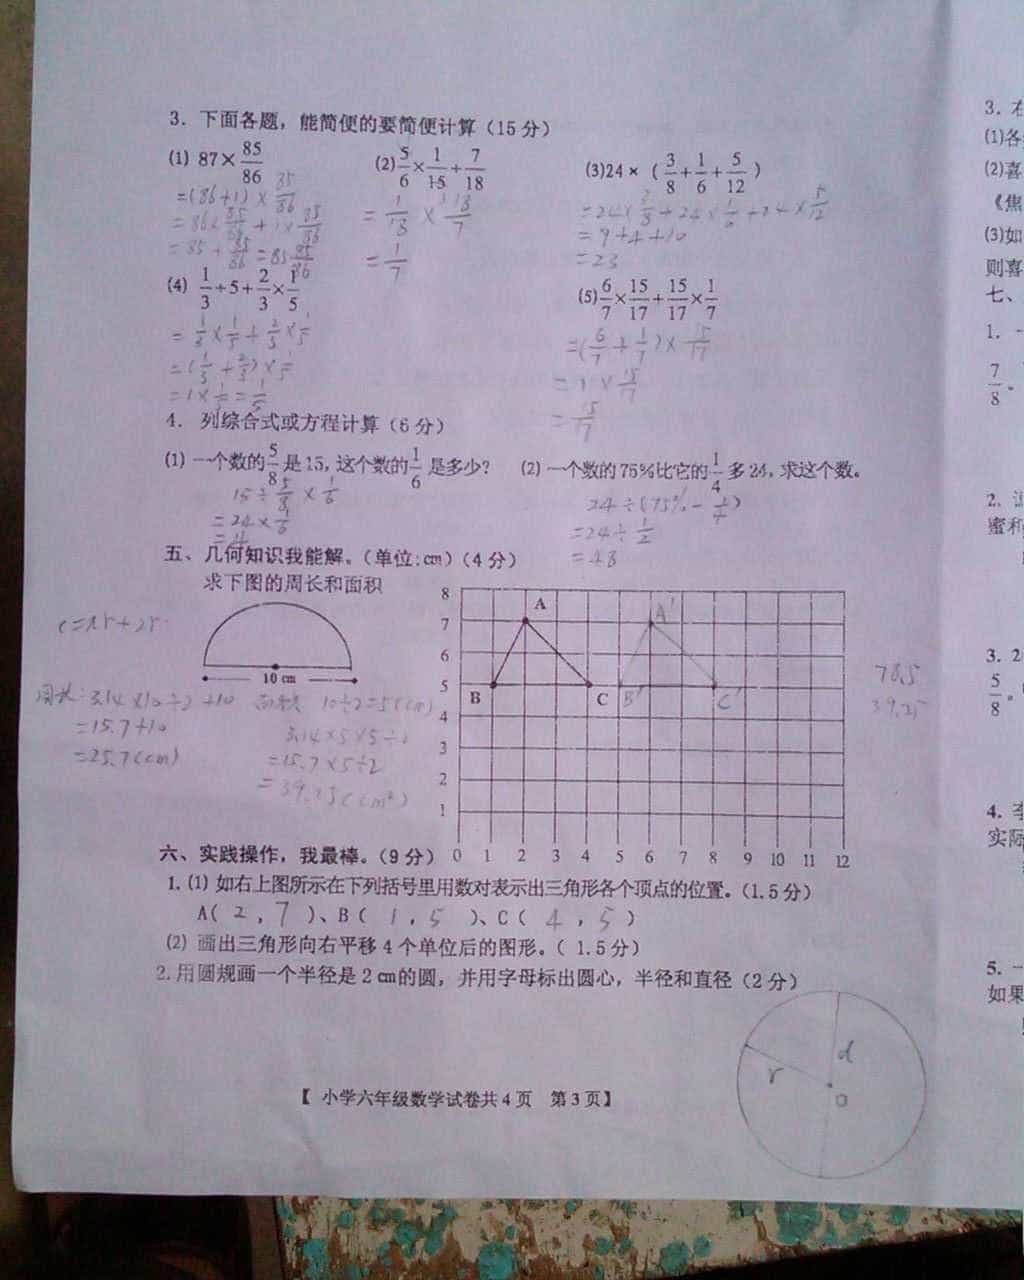 3. 下面各题，能简便的要简便计算（15 分）
(1) 87×85/86 (2) 5/6×1/15÷7/18 (3)24×（3/8+1/6+5/12）
=(86+1)×85/86
=86×85/86+1×85/86
=85+85/86=85 85/86
=1/18×18/7
=1/7
=24×3/8+24×1/6+24×5/12
=9+4+10
=23
(4) 1/3÷5+2/3×1/5 (5)6/7×15/17+15/17×1/7
=1/3×1/5+2/3×1/5
=(1/3+2/3)×1/5
=1×1/5=1/5
=(6/7+1/7)×15/17
=1×15/17
=15/17
4. 列综合式或方程计算（6 分）
(1) 一个数的5/8是15，这个数的1/6是多少？ (2) 一个数的75%比它的1/4多24，求这个数。
15÷5/8×1/6
=24×1/6
=4
24÷(75%-1/4)
=24÷1/2
=48
五、几何知识我能解。（单位:cm）（4 分）
求下图的周长和面积
c=πr+2r
10 cm
周长:3.14×10÷2+10
=15.7+10
=25.7(cm)
面积 10÷2=5(cm)
3.14×5×5÷2
=15.7×5÷2
=39.25(cm²)
8
7
6
5
4
3
2
1
A A'
B C B' C'
0 1 2 3 4 5 6 7 8 9 10 11 12
78.5
39.25
六、实践操作，我最棒。（9 分）
1. (1) 如右上图所示在下列括号里用数对表示出三角形各个顶点的位置。（1.5 分）
A( 2 , 7 )、B( 1 , 5 )、C( 4 , 5 )
(2) 画出三角形向右平移 4 个单位后的图形。（ 1.5 分）
2. 用圆规画一个半径是 2 cm的圆，并用字母标出圆心，半径和直径（2 分）
d
r
O
【 小学六年级数学试卷共 4 页 第 3 页】
3. 右
(1)各
(2)喜
《焦
(3)如
则喜
七、
1. 一
7/8。
2.
蜜和
3. 2
5/8。
4. 李
实际
5. 一
如果